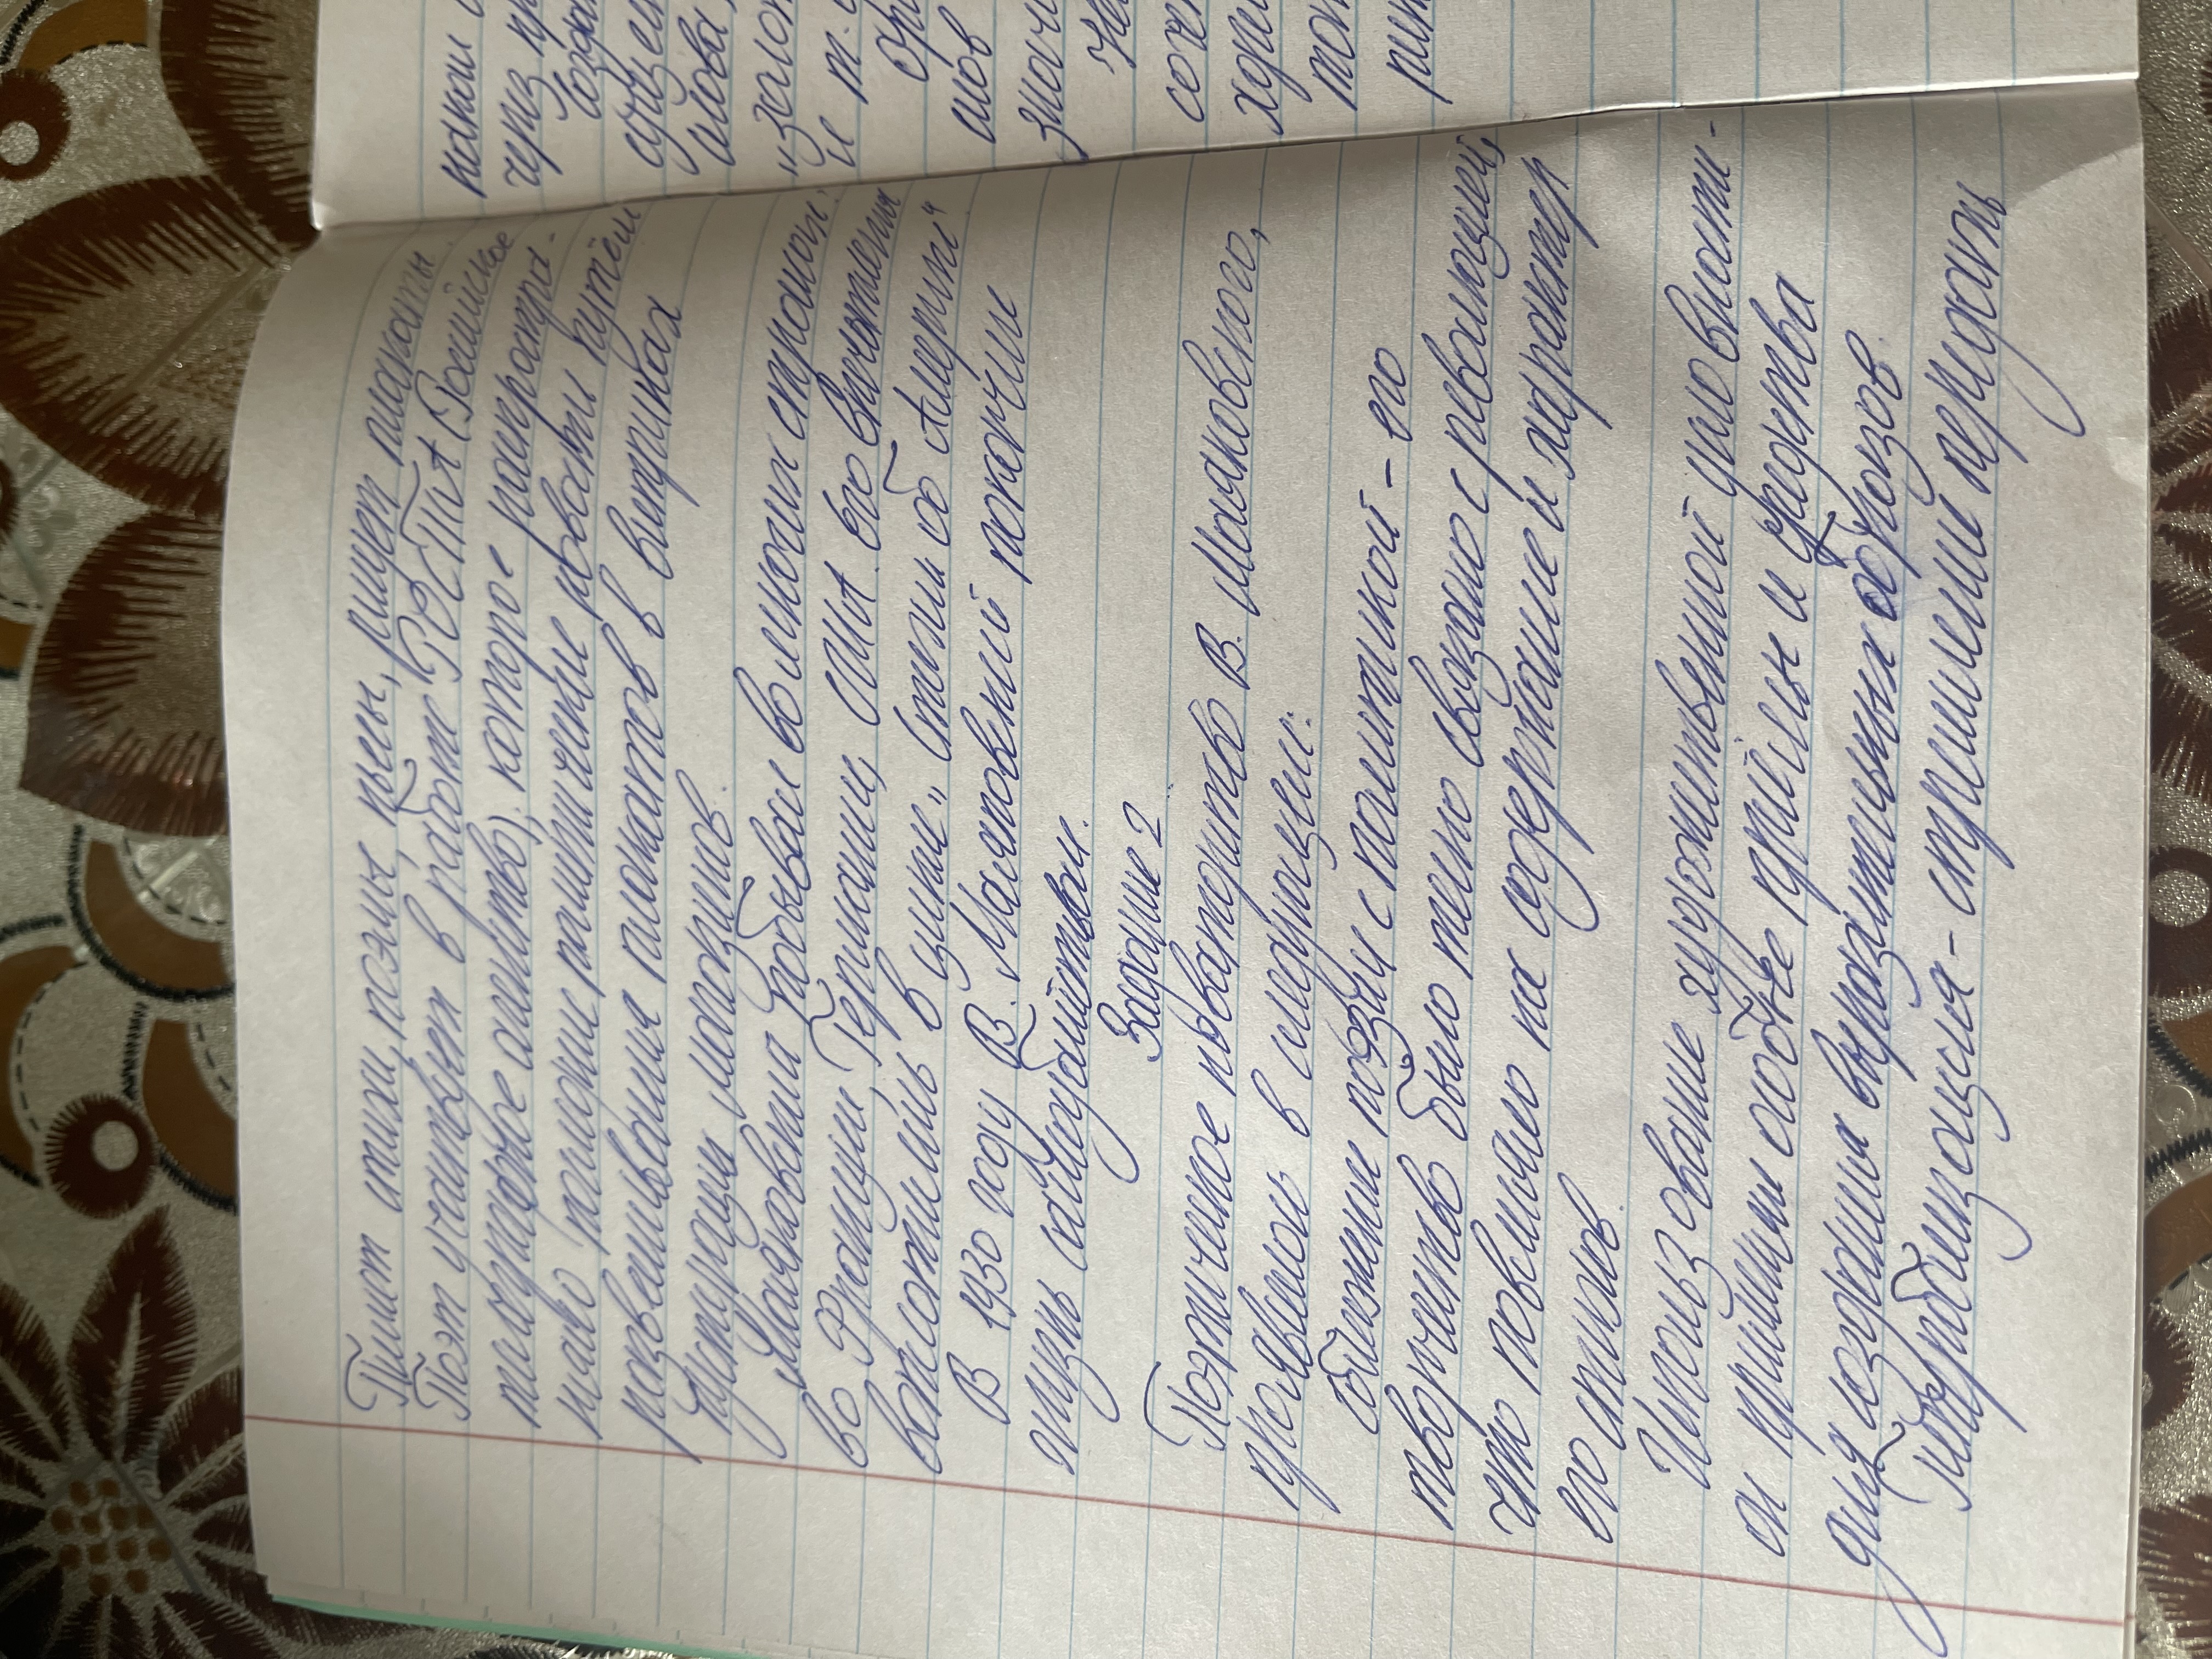 Пишет стихи, поэмы, пьесы, рисует плакаты.
Поэт участвует в работе РОСТИА (Российское
телеграфное агентство), которое распростра-
няло политические новости путём
развешивания плакатов в витринах
пустующих магазинов.
Маяковский побывал во многих странах:
во Франции, Германии, США. Его впечатления
воплотились в цикле "Стихи об Америке"
В 1930 году В. Маяковский покончил
жизнь самоубийством.
Задание 2
Поэтическое новаторство В. Маяковского,
проявилось в следующем:
Сближение поэзии с политикой - его
творчество было тесно связано с революцией,
что повлияло на содержание и характер
его стихов.
Использование художественной условности -
он применял особые приёмы и средства
для создания выразительных образов.
Гиперболизация - стремление передать
нами
через
слова
"золот
и т.
слов
значи
соче